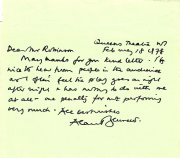 Queens Theatre W1
Feb 1978
Dear Mr Robinson
Many thanks for your kind letter. It's
nice to hear from people in the audience
as I often feel the play goes on night
after night & has nothing to do with me
at all - one penalty for not performing
very much. All best wishes
Alan Bennett